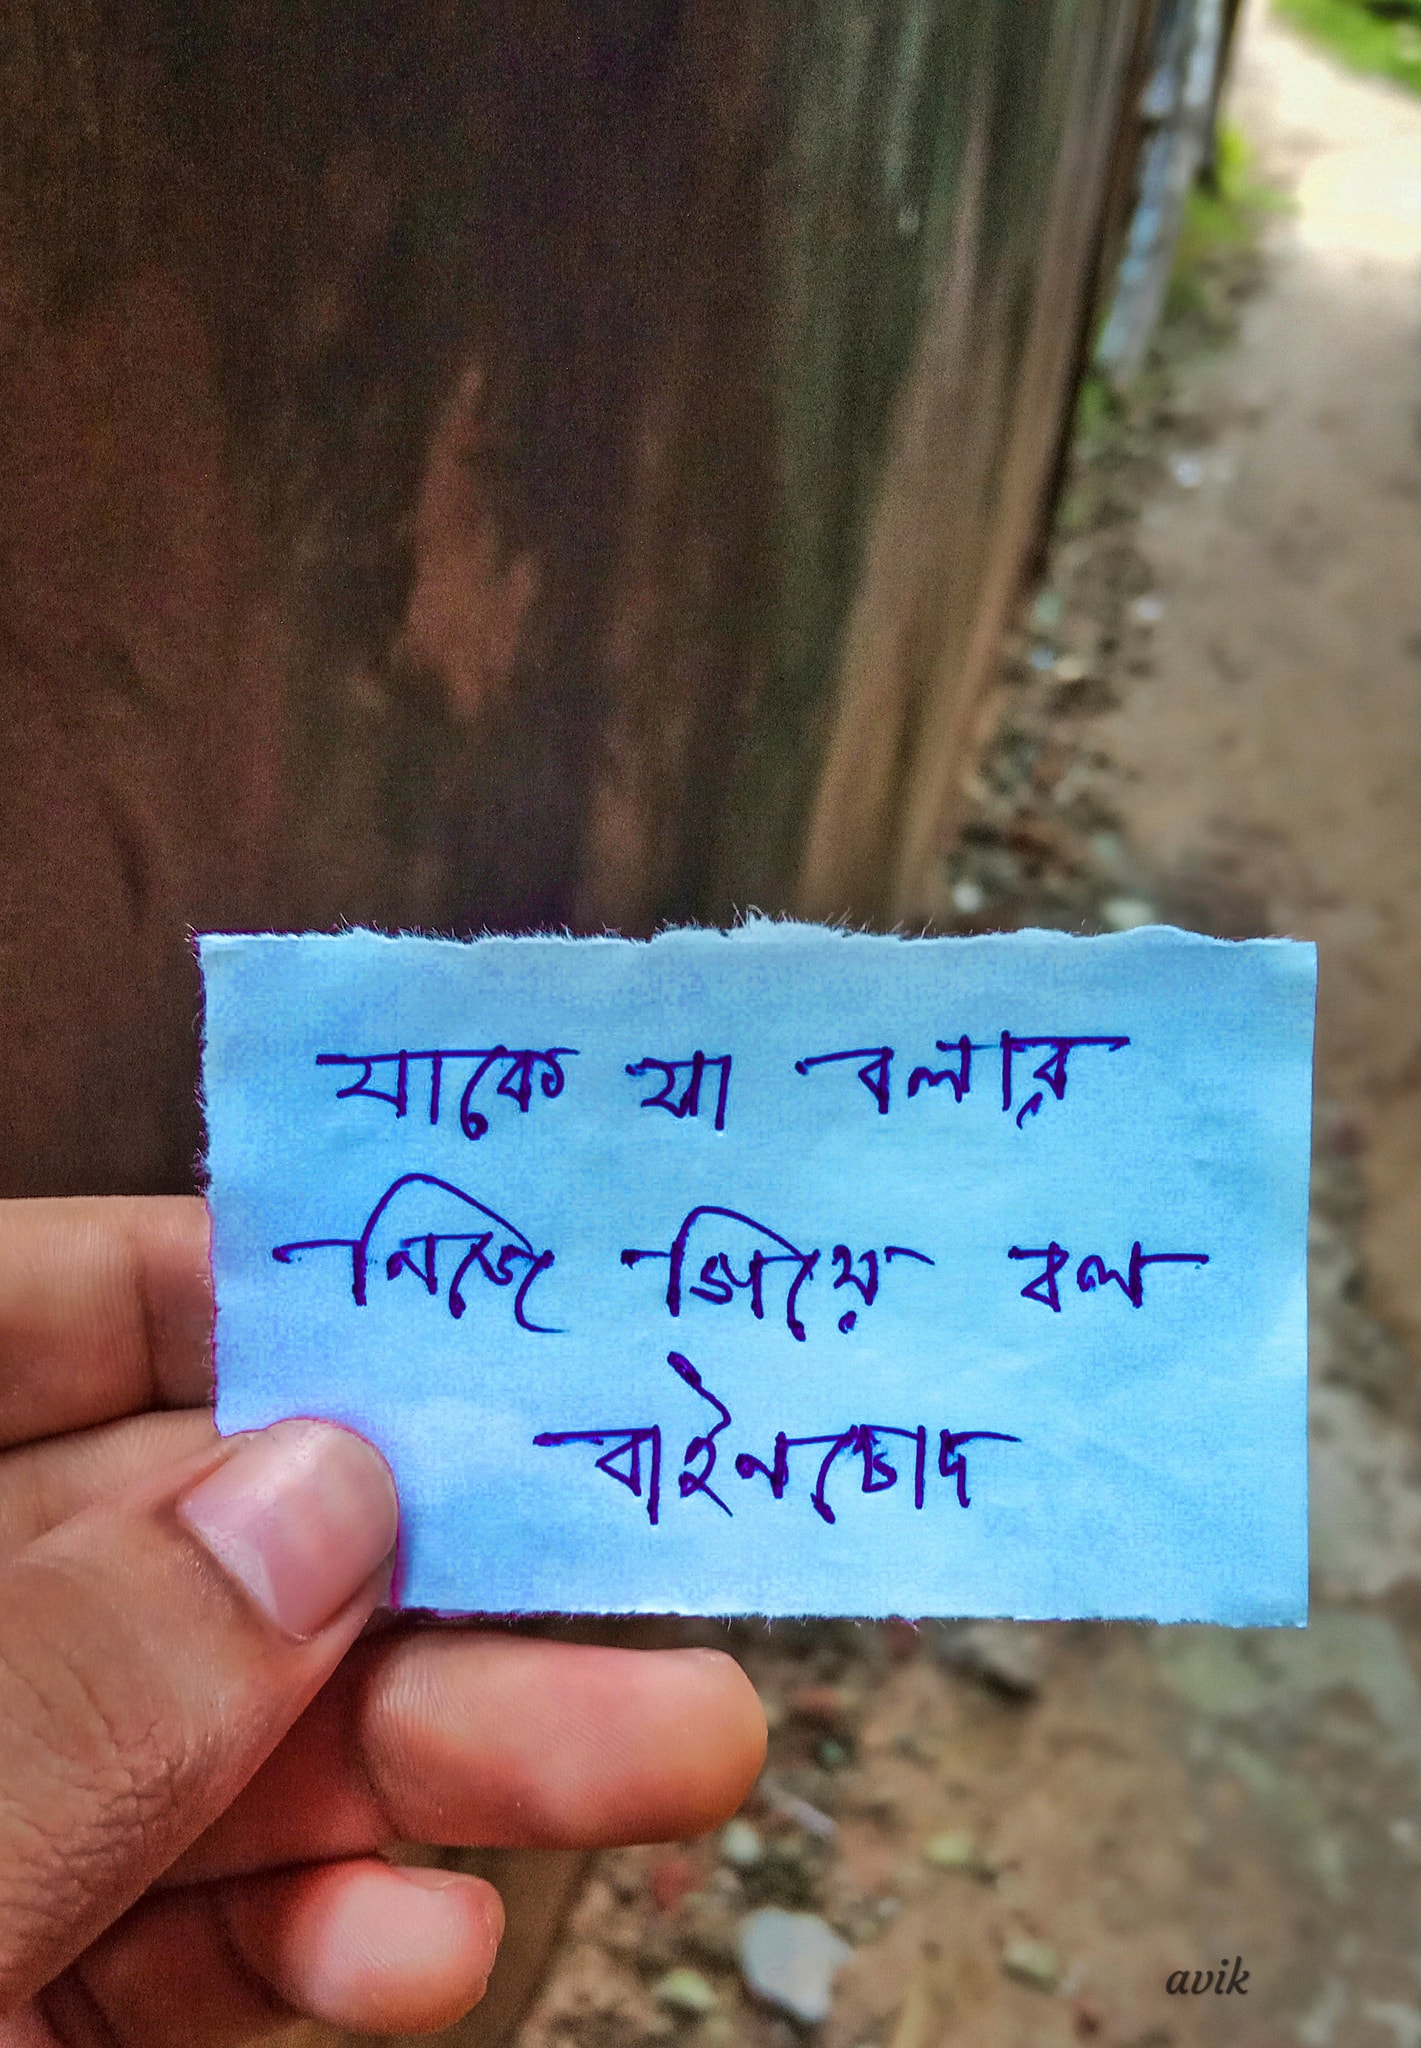 যাকে যা বলার
নিজে গিয়ে বল
বাইনচোদ
avik